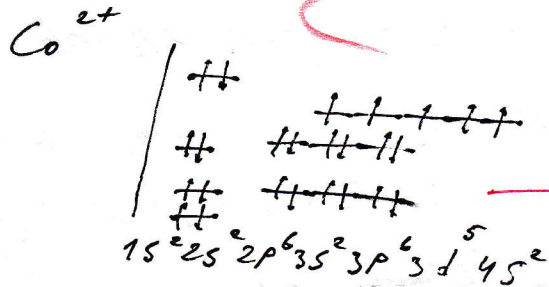 Co²⁺
1s²2s²2p⁶3s²3p⁶3d⁵4s²